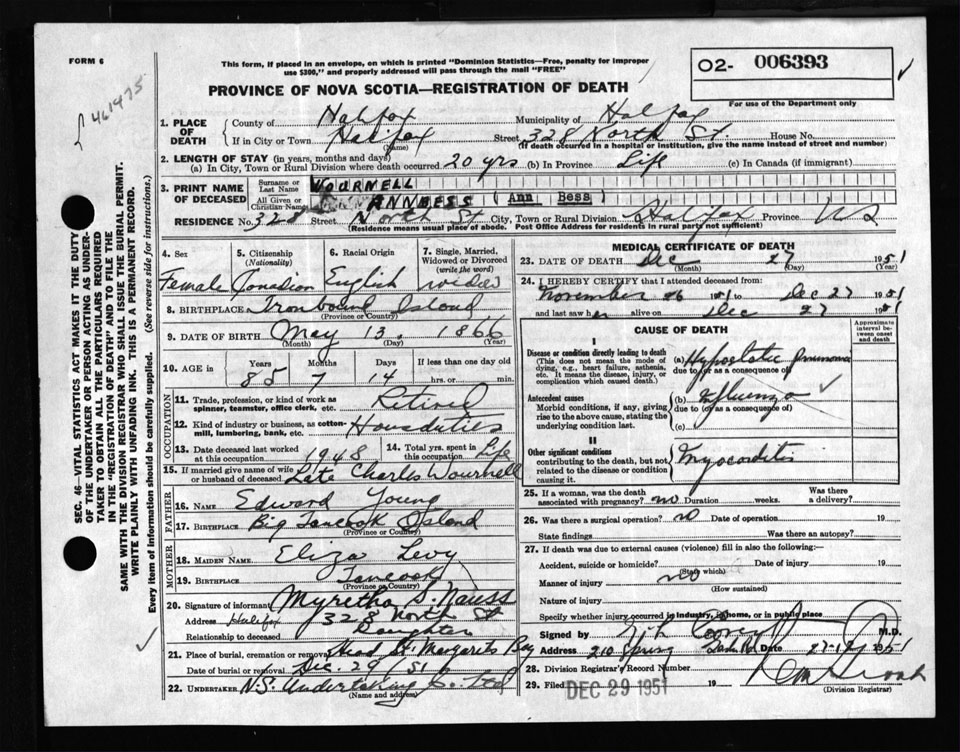 FORM 6
This form, if placed in an envelope, on which is printed "Dominion Statistics—Free, penalty for improper
use $300," and properly addressed will pass through the mail "FREE"
O2- 006393
For use of the Department only
PROVINCE OF NOVA SCOTIA—REGISTRATION OF DEATH
461475
1. PLACE OF DEATH
County of Halifax Municipality of Halifax
If in City or Town Halifax Street 328 North St. House No.
(Name) (If death occurred in a hospital or institution, give the name instead of street and number)
2. LENGTH OF STAY (in years, months and days)
(a) In City, Town or Rural Division where death occurred 20 yrs (b) In Province Life (c) In Canada (if immigrant)
3. PRINT NAME OF DECEASED
Surname or Last Name WOURNELL
All Given or Christian Names ANNBESS (Ann Bess)
RESIDENCE No. 328 Street North St City, Town or Rural Division Halifax Province NS
(Residence means usual place of abode. Post Office Address for residents in rural parts not sufficient)
SEC. 46—VITAL STATISTICS ACT MAKES IT THE DUTY
OF THE UNDERTAKER OR PERSON ACTING AS UNDER-
TAKER TO OBTAIN ALL THE PARTICULARS REQUIRED
IN THE "REGISTRATION OF DEATH" AND TO FILE THE
SAME WITH THE DIVISION REGISTRAR WHO SHALL ISSUE THE BURIAL PERMIT.
WRITE PLAINLY WITH UNFADING INK. THIS IS A PERMANENT RECORD.
Every item of Information should be carefully supplied. (See reverse side for instructions.)
4. Sex Female
5. Citizenship (Nationality) Canadian
6. Racial Origin English
7. Single, Married, Widowed or Divorced (write the word) widow
8. BIRTHPLACE Ironbound Island
(Province or Country)
9. DATE OF BIRTH May 13, 1866
(Month) (Day) (Year)
10. AGE in Years 85 Months 7 Days 14 If less than one day old hrs. or min.
OCCUPATION
11. Trade, profession, or kind of work as
spinner, teamster, office clerk, etc. Retired
12. Kind of industry or business, as cotton-
mill, lumbering, bank, etc. Housduties
13. Date deceased last worked at this occupation 1948
14. Total yrs. spent in this occupation Life
15. If married give name of wife
or husband of deceased Late Charles Wournell
FATHER
16. NAME Edward Young
17. BIRTHPLACE Big Tancook Island
(Province or Country)
MOTHER
18. MAIDEN NAME Eliza Levy
19. BIRTHPLACE Tancook
(Province or Country)
20. Signature of informant Myretha S. Nauss
Address Halifax 328 North St
Relationship to deceased Daughter
21. Place of burial, cremation or removal Head St. Margarets Bay
Date of burial or removal Dec. 29/51
22. UNDERTAKER N.S. Undertaking Co. Ltd
(Name and address)
MEDICAL CERTIFICATE OF DEATH
23. DATE OF DEATH Dec 27 1951
(Month) (Day) (Year)
24. I HEREBY CERTIFY that I attended deceased from:
November 26 1951 to Dec 27 1951
and last saw her alive on Dec 27 1951
CAUSE OF DEATH
Approximate interval between onset and death
I
Disease or condition directly leading to death
(This does not mean the mode of
dying, e.g., heart failure, asthenia,
etc. It means the disease, injury, or
complication which caused death.)
(a) Hypostatic pneumonia
due to (or as a consequence of)
Antecedent causes
Morbid conditions, if any, giving
rise to the above cause, stating the
underlying condition last.
(b) Influenza
due to (or as a consequence of)
(c)
II
Other significant conditions
contributing to the death, but not
related to the disease or condition
causing it.
Myocarditis
25. If a woman, was the death
associated with pregnancy? no Duration weeks. Was there a delivery?
26. Was there a surgical operation? no Date of operation 19
State findings Was there an autopsy?
27. If death was due to external causes (violence) fill in also the following:—
Accident, suicide or homicide? Date of injury 19
(State which)
Manner of injury no
(How sustained)
Nature of injury
Specify whether injury occurred in industry, in home, or in public place
Signed by M.D.
Address 210 Spring Date 27-12 1951
28. Division Registrar's Record Number
29. Filed DEC 29 1951 19
(Division Registrar)